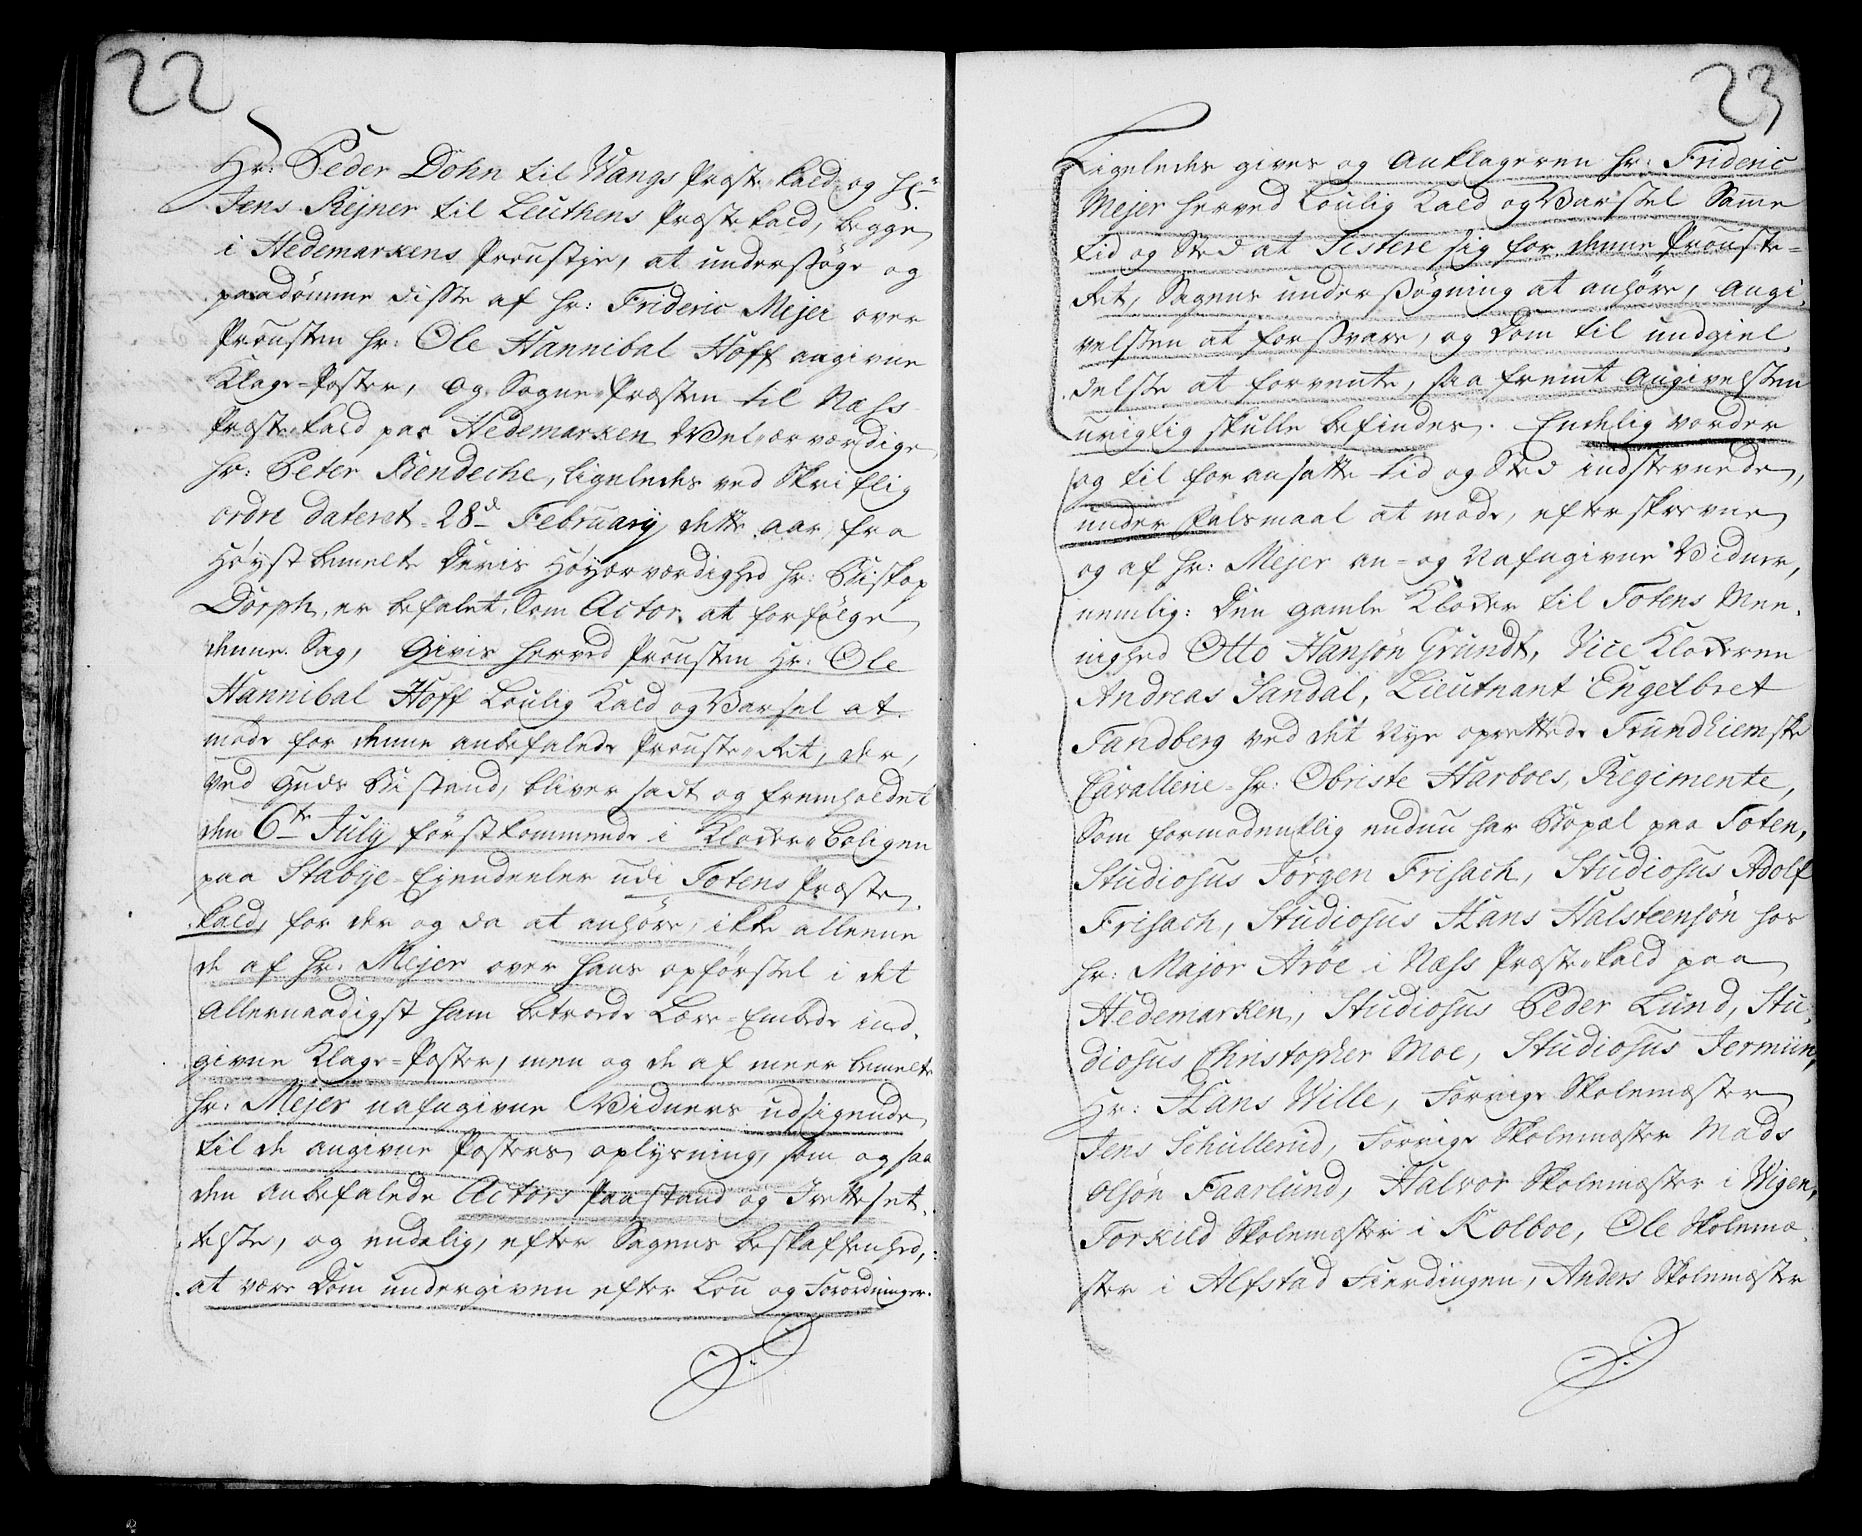 22
Hr: Peder Dohn til Wangs Præste-kald, og Hr:
Jens Rejner til Leuthens Præste kald, begge
i Hedemarkens Proustje, at undersøge og
paadömme disse af Hr: Frideric Mejer over
Prousten Hr: Ole Hannibal Hoff angivne
Klage-Poster, og Sogne Præsten til Næss
Præste-kald paa Hedemarken Welærværdige
Hr: Peter Bendeche, ligeledes ved Skriftlig
ordre dateret 28d February dette aar, fra
Høystbemelte Deris Høyærværdighed Hr: Biskop
Dorph, er befalet, Som Actor, at forfölge
denne Sag, Givis herved Prousten Hr: Ole
Hannibal Hoff Loulig Kald og Varsel at
møde for denne anbefalede Prouste-Ret, der,
ved Guds Bistand, bliver sadt og fremholdet
den 6te July førstkommende i Klocker-Boligen
paa Stabye-Eyendeeler udi Totens Præste-
kald, for der og da at anhöre, ikke alleene
de af Hr: Mejer over hans opførsel i det
Allernaadigst ham betroede Lære-Embede ind-
givne Klage-Poster, men og de af meer bemelte
Hr: Mejer nafngivne Vidners udsigende
til de angivne Posters oplysning, som og saa
den anbefalede Actors Paastand og Irettesæt-
telse, og endelig, efter Sagens beskaffenhed,
at være Dom undergiven efter Lou og Forordninger.
23
Ligeledes gives og Anklageren Hr: Frideric
Mejer herved Loulig Kald og Varsel Same
tid og Sted at Sistere sig for denne Prouste-
Ret, Sagens undersøgning at anhöre, Angi-
velsen at forsvare, og Dom til undgiel-
delse at forvente, saa fremt Angivelsen
urigtig skulle befindes. Endelig vorder
og til foransatte tid og Sted indstevnede,
under Falsmaal at møde, efterskrevne
og af Hr: Mejer an- og Nafngivne Vidner,
nemlig: Den gamle Klocker til Totens Mee-
nighed Otto Hansøn Grundt, Vice Klockeren
Andreas Sandal, Lieutnant Engelbret
Fandberg ved det Nye oprettede Trundhiemske
Cavallerie Hr: Obriste Harboes, Regimente,
Som formodentlig endnu har Bopæl paa Toten,
Studiosus Jörgen Frisach, Studiosus Adolf
Frisach, Studiosus Hans Halsteensön hos
Hr: Major Aröe i Næss Præste-kald paa
Hedemarken, Studiosus Peder Lund, Stu-
diosus Christopher Moe, Studiosus Jermiin,
Hr: Hans Wille, Forrige Skolemæster
Jens Schullerud, Forrige Skolemæster Mads
Olsön Faarlund, Halvor Skolemæster i Wigen,
Torkild Skolemæster i Kolboe, Ole Skolemæ-
ster i Alfstad Fierdingen, Anders Skolemæster